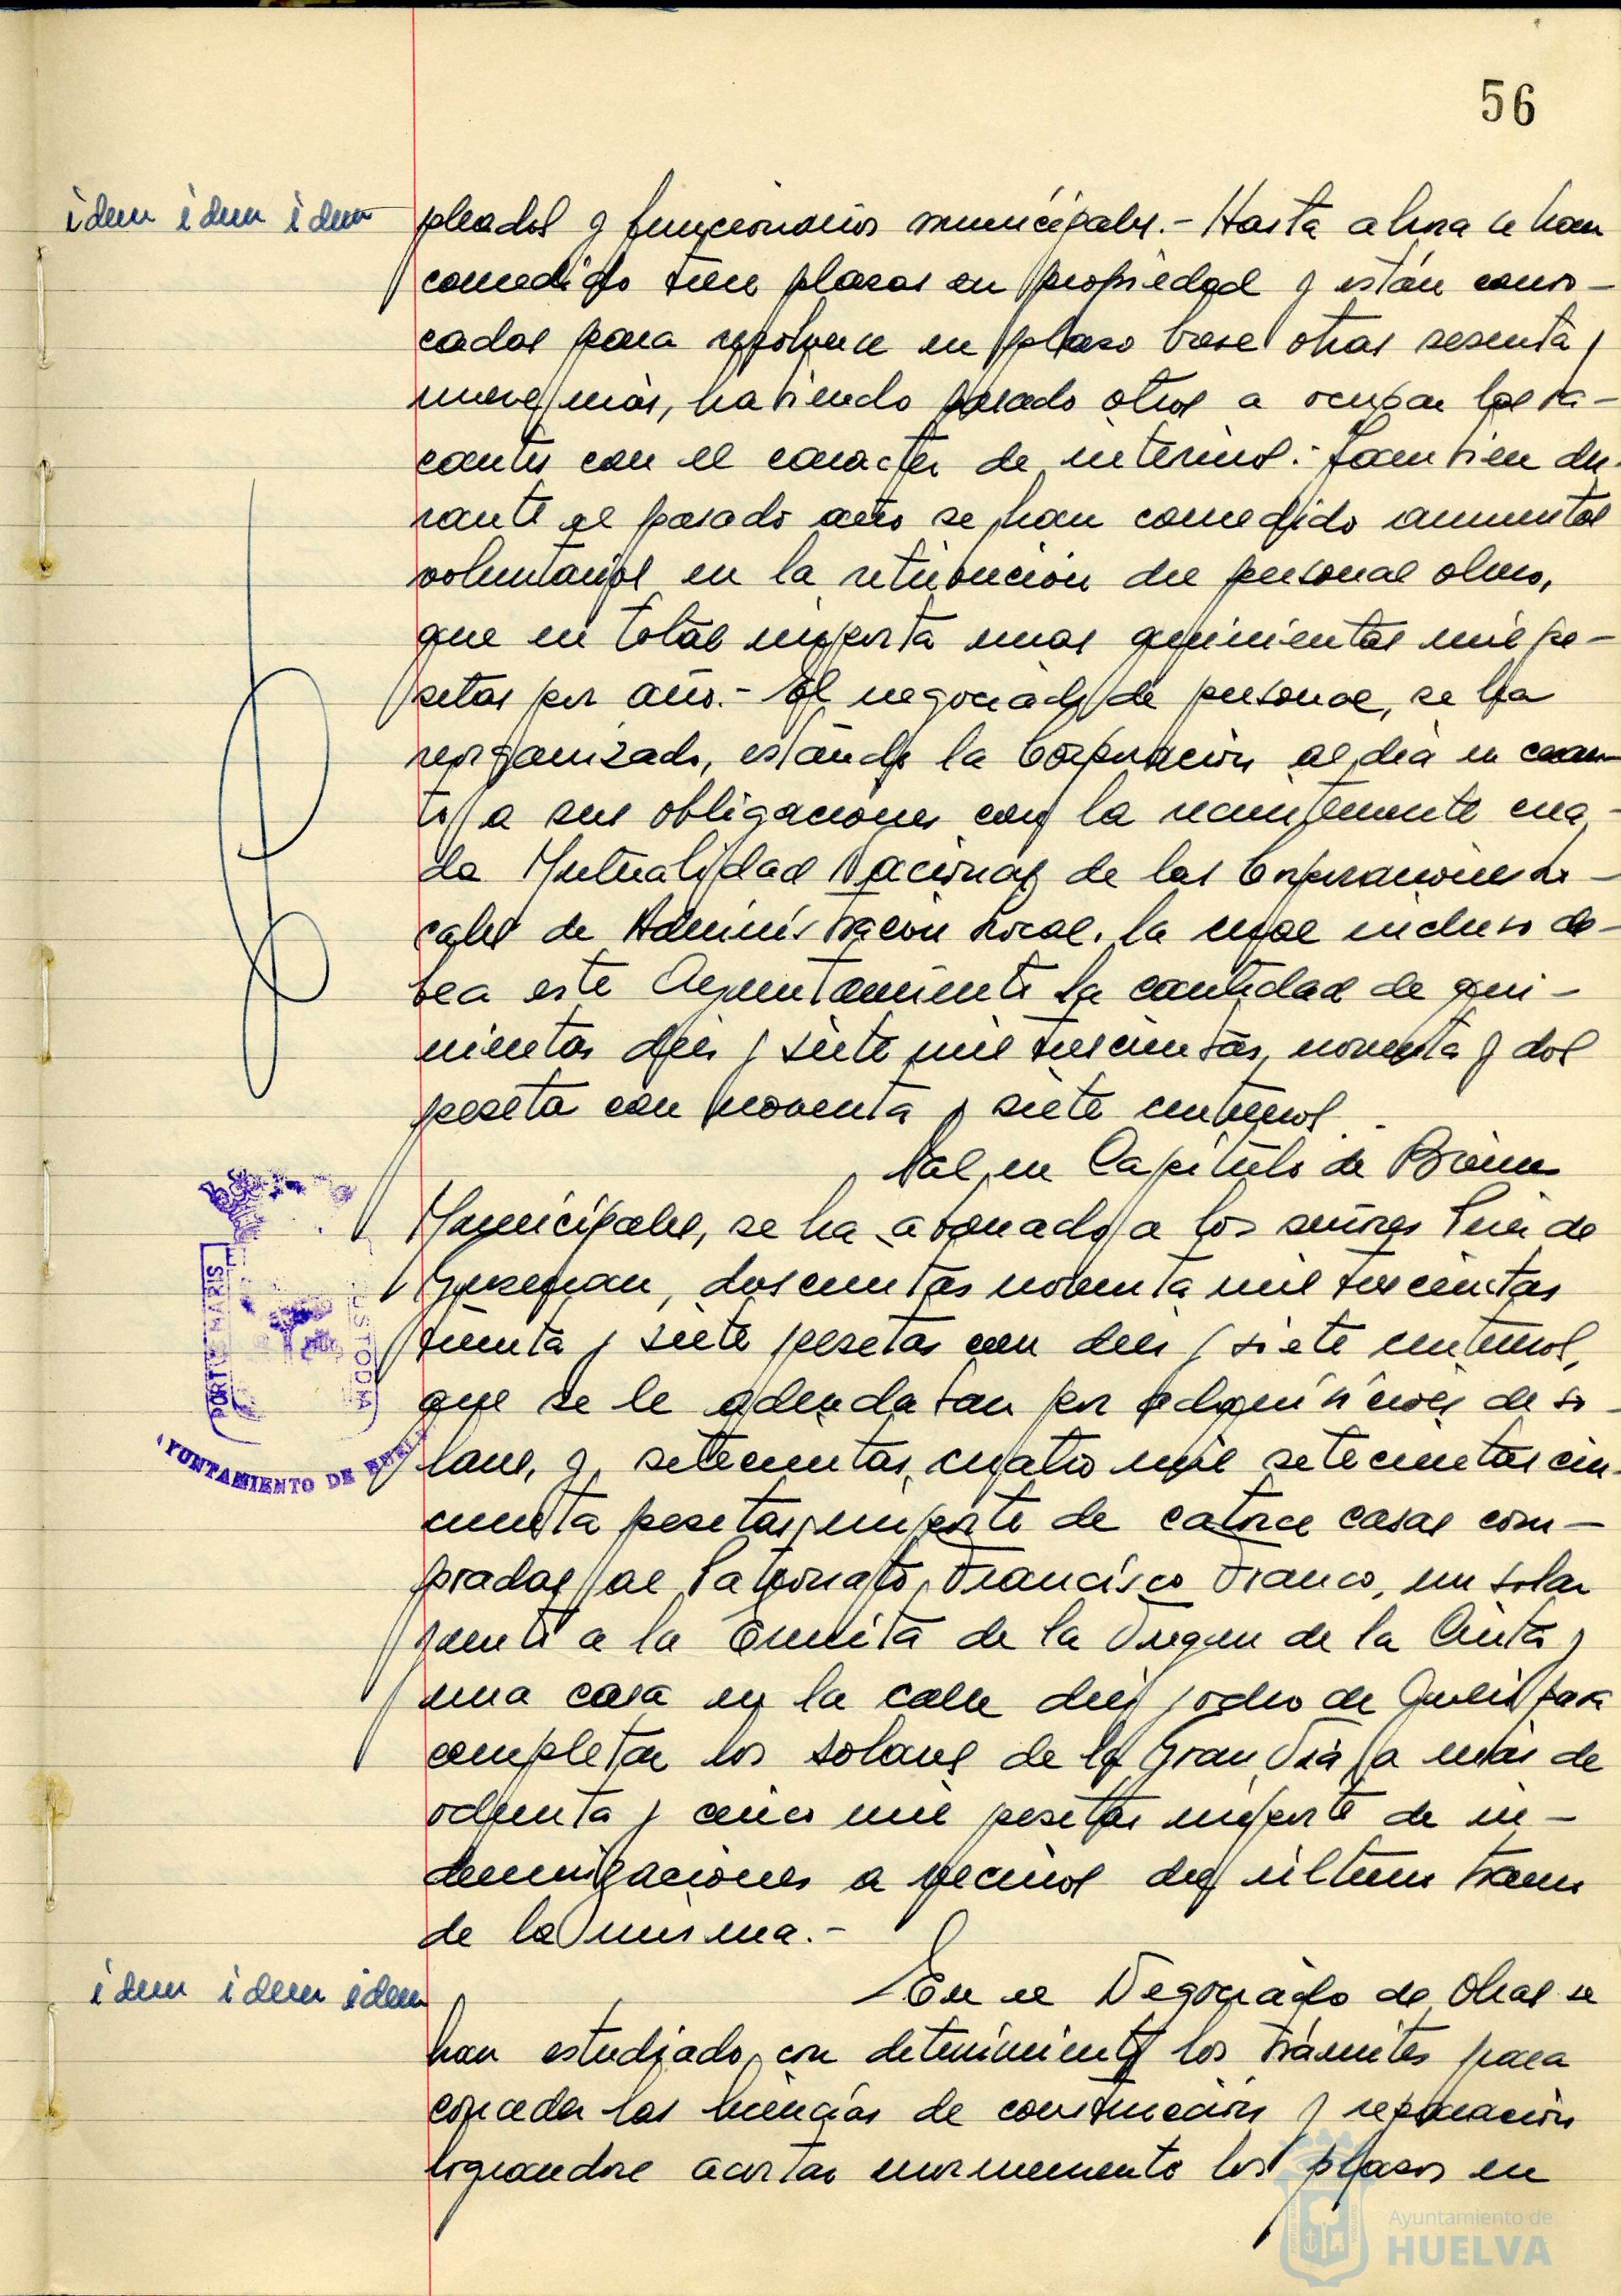 56
idem idem idem
pleados y funcionarios municipales.- Hasta ahora se han
concedido trece plazas en propiedad y están convo-
cadas para resolverse en plazo breve otras sesenta y
nueve más, habiendo pasado otros a ocupar las va-
cantes con el caracter de interinos.- Tambien du-
rante el pasado año se han concedido aumentos
voluntarios en la retribución del personal obrero,
que en total importa unas quinientas mil pe-
setas por año.- El negociado de personal, se ha
reorganizado, estando la Corporación al dia en cuan-
to a sus obligaciones con la recientemente crea-
da Mutualidad Nacional de las Corporaciones Lo-
cales de Administración Local, la cual incluso de-
bea este Ayuntamiento la cantidad de qui-
nientas diez y siete mil trescientas noventa y dos
peseta con noventa y siete centimos.-
Del en Capitulo de Bienes
Municipales, se ha abonado a los señores Perez de
Guzman, doscientas noventa mil trescientas
treinta y siete pesetas con diez y siete centimos,
que se le adeudaban por adquisición de so-
lares, y setecientas cuatro mil setecientas cin-
cuenta pesetas, importe de catorce casas com-
pradas al Patronato Francisco Franco, un solar
frente a la Ermita de la Virgen de la Cinta y
una casa en la calle diez y ocho de Julio para
completar los solares de la Gran Via, a más de
ochenta y cinco mil pesetas importe de in-
demnizaciones a vecinos del último tramo
de la misma.-
idem idem idem
En el Negociado de Obras se
han estudiado con detenimiento los trámites para
conceder las licencias de construcción y reparación
lograndose acortar enormemente los plazos en
PORTUS MARIS
CUSTODIA
AYUNTAMIENTO DE HUELVA
Ayuntamiento de
HUELVA